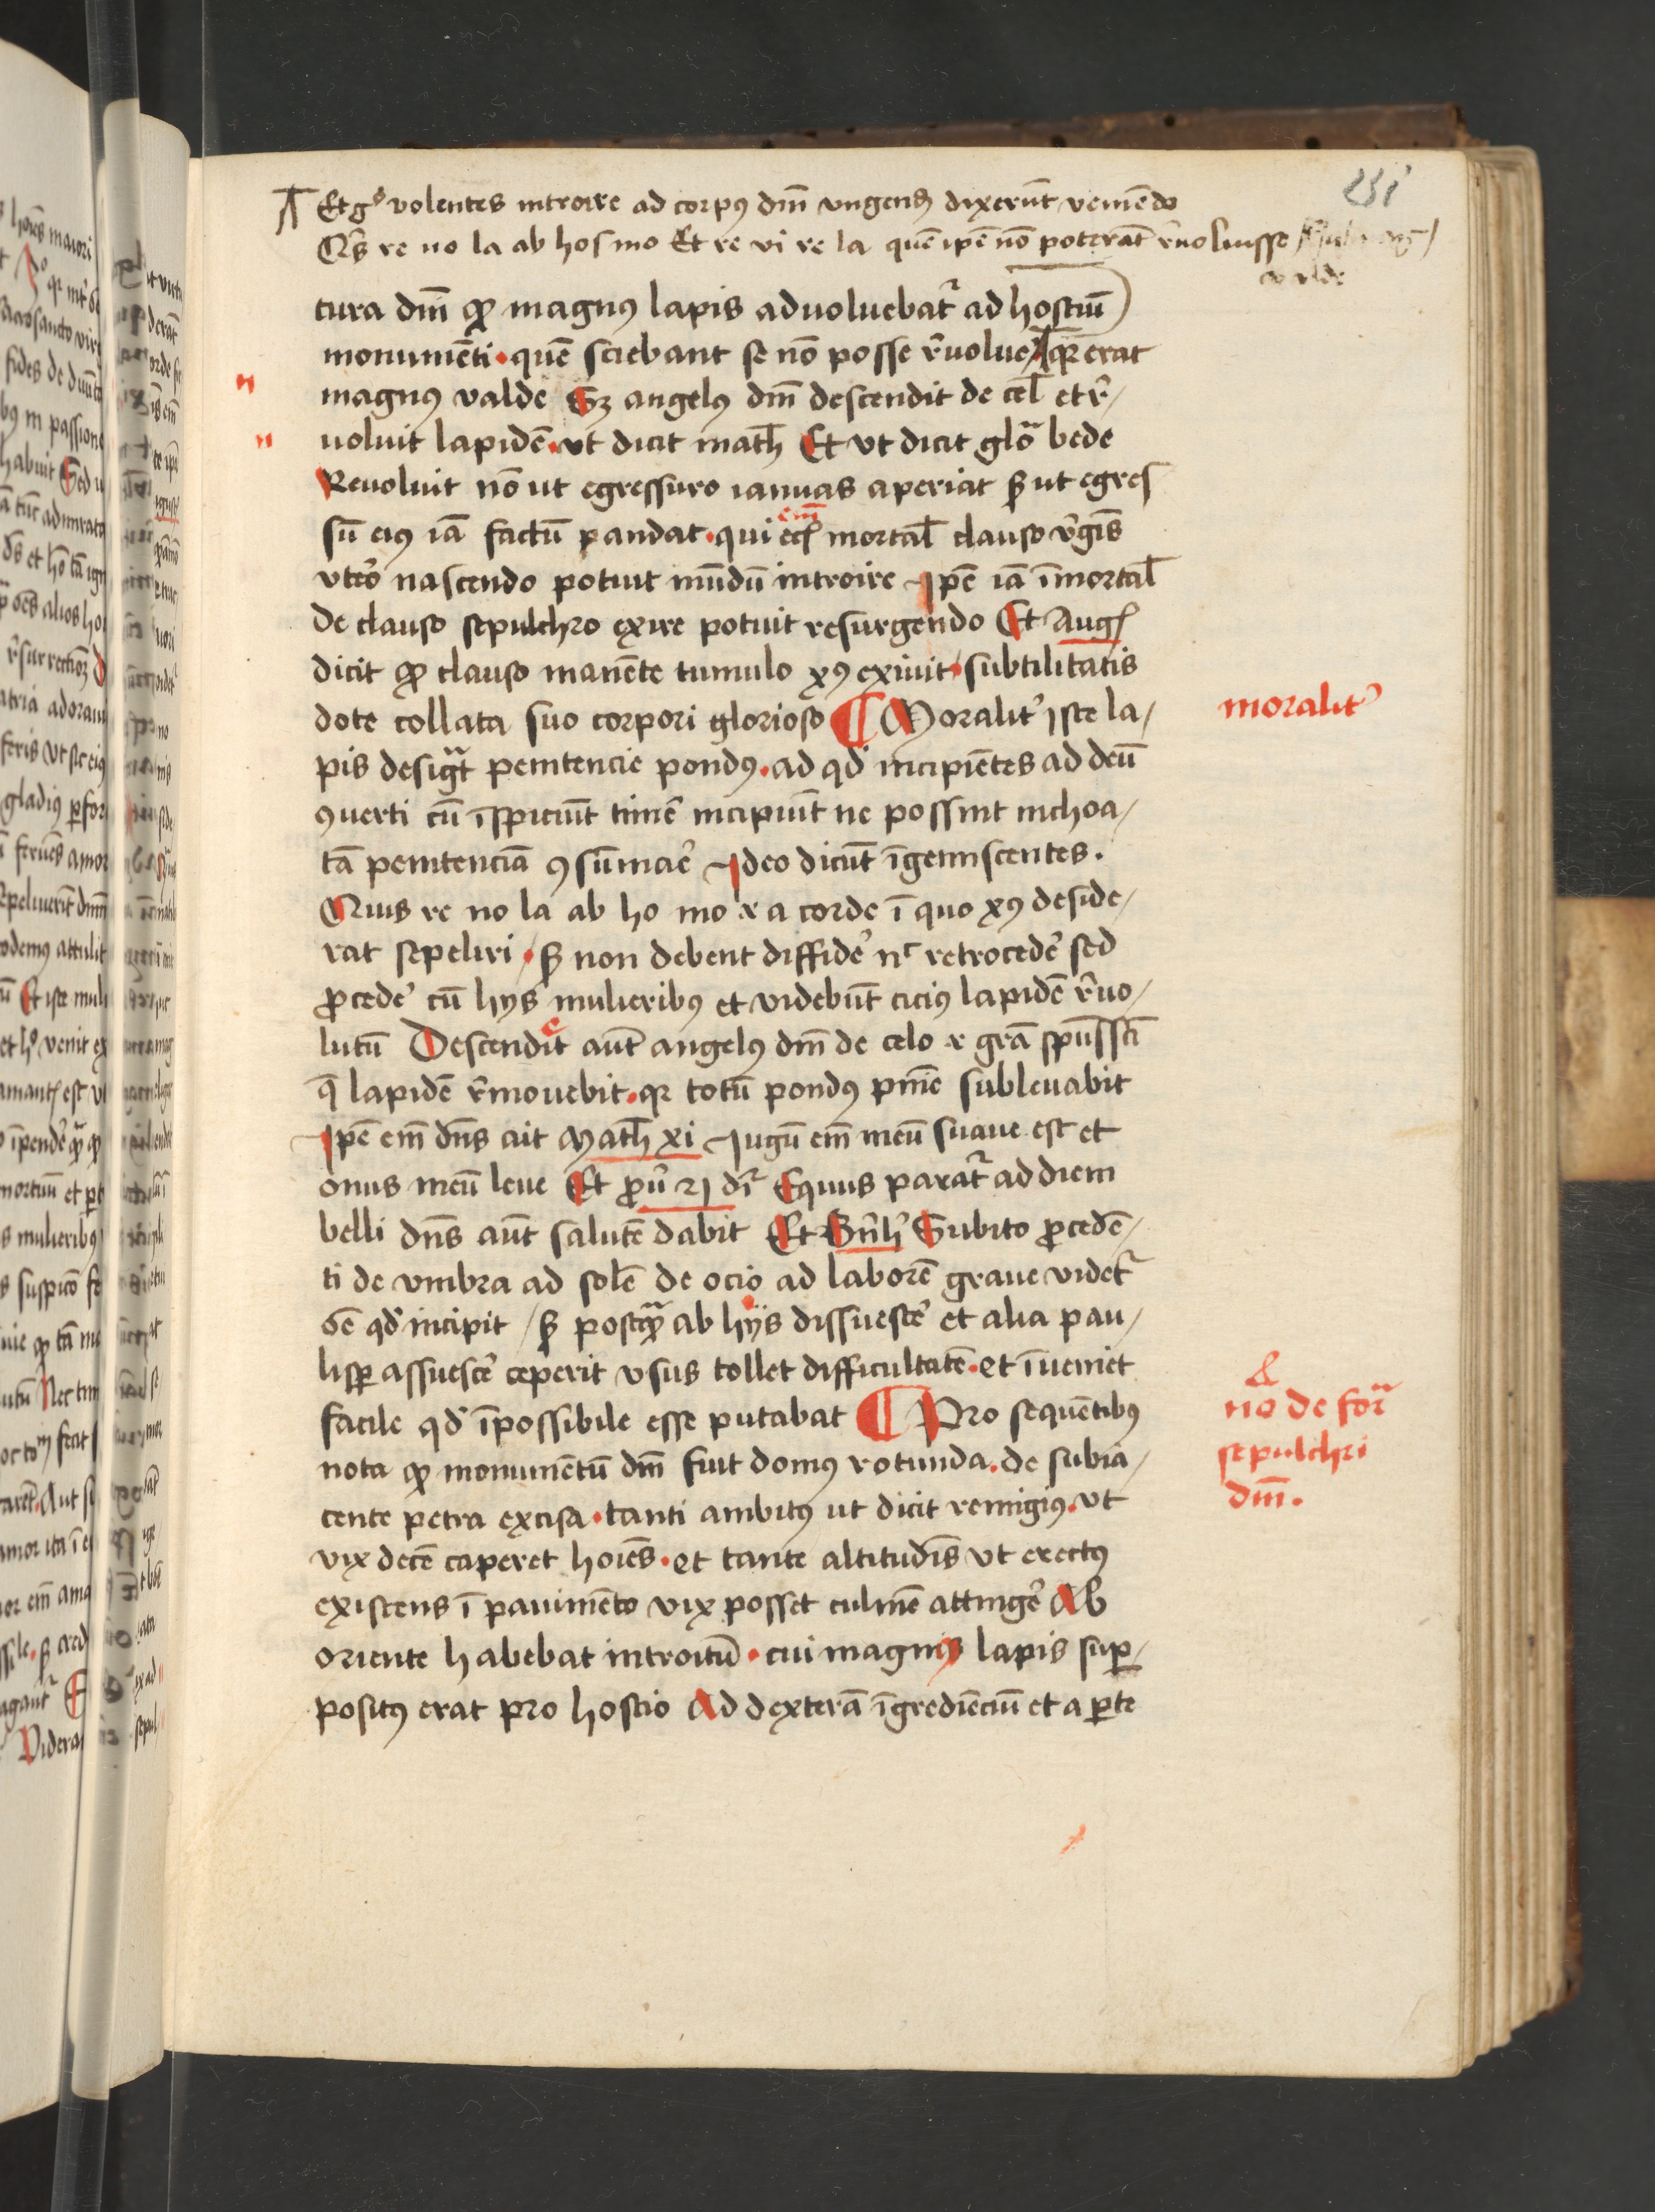 251
Et gͦ volentes introire ad corpꝯ dm̄ vngend dixerūt veniēdo
Qͥs re uo la ab hos mo Et re vi re la quē ip̄e nō poterāt r̄uoluisse
valde
tura dm̄ ꝙ magnꝯ lapis aduoluebat᷑ ad hostiū
monumēti · quē sciebant se nō posse r̄uolue᷑ qꝛ erat
magnꝯ valde Sꝫ angelꝯ dm̄ descendit de cel̄ et r̄/
uoluit lapidē · vt dicit math̄ Et vt dicit glo᷑ bede
Reuoluit nō ut egressuro ianuas aperiat sꝫ ut egres
sū eiꝯ iā factū pandat · qui em̄ mortal̄ clauso v᷑gīs
vte᷑o nascendo potuit mūdū introire Ip̄e iā īmortal̄
de clauso sepulchro exire potuit resurgendo Et Augꝰ
dicit ꝙ clauso manēte tumulo xꝯ exiuit · subtilitatis
dote collata suo corpori glorioso ¶ Moralit᷑ iste la/
moralit᷑
pis desigᷓt penitencie pondꝯ · ad qd̄ incipiētes ad deū
ꝯuerti cū īspiciūt timē᷑ incipiūt ne possint inchoa/
tā penitenciā ꝯsūmare᷑ Ideo dicūt īgemiscentes ·
Quis re uo la ab ho mo i a corde ī quo xꝯ deside/
rat sepeliri · sꝫ non debent diffide᷑ nͨ retrocede᷑ sed
ꝓcede᷑ cū hys mulieribꝯ et videbūt cicius lapidē r̄uo/
lutū Descendit aūt angelꝯ dm̄ de celo i gr̄a spūssc̄i
q̄ lapidē r̄mouebit · qꝛ totū pondꝯ pn̄ie subleuabit
Ip̄e em̄ dn̄s ait Math̄ xi Iugū em̄ meū suaue est et
onus meū leue Et ꝓu᷑ 21 dr̄ Equus parat᷑ ad diem
belli dn̄s aūt salutē dabit Et Bn̄h᷑ Subito ꝓcedē/
ti de vmbra ad solē de ocio ad laborē graue videt᷑
oē̄ qd᷑ incipit / sꝫ postqᷓ ab hijs dissuesce᷑ et alia pau/
lisꝑ assuesce᷑ ceperit vsus tollet difficultatē · et īueniet
facile qd᷑ īpossibile esse putabat ¶ Pro sequētibꝯ
nō de forᷓ
sepulchri
dm̄ ·
nota ꝙ monumētū dm̄ fuit domꝯ rotunda · de subia/
cente petra excisa · tanti ambitꝯ ut dicit remigiꝯ · vt
vix decē caperet hoīes · et tante altitudīs vt erectꝯ
existens ī pauimēto vix posset culmē attinge᷑ Ab
oriente habebat introitū · cui magnꝯ lapis suꝑ/
positꝯ erat pro hostio Ad dexterā īgrediēciū et a ꝑte